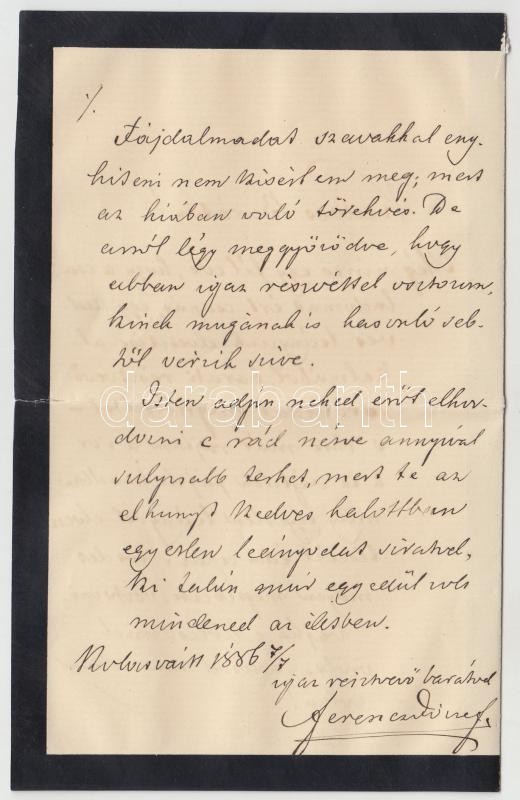 ./.
Fájdalmadat szavakkal eny-
hiteni nem kisérlem meg; mert
az hiában való törekvés. De
arról légy meggyőződve, hogy
abban igaz részvéttel osztozom,
kinek magának is hasonló seb-
től vérzik szive.
Isten adjon neked erőt elhor-
dozni e rád nézve annyival
sulyosabb terhet, mert te az
elhunyt kedves halottban
egyetlen leányodat siratod,
ki talán már egyedül volt
mindened az életben.
Kolozsvártt 1886 7/7
igaz résztvevő barátod
Ferencz József.
darabanth